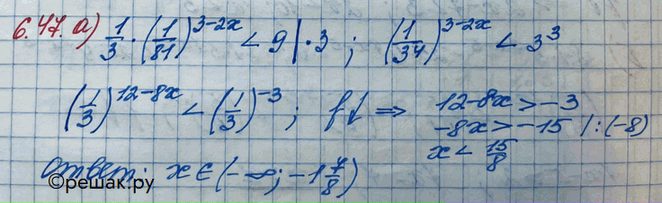 6.47. а) 1/3 · (1/81)^(3-2x) < 9 | · 3 ; (1/3^4)^(3-2x) < 3^3
(1/3)^(12-8x) < (1/3)^(-3) ; f↓ ⇒ 12-8x > -3
-8x > -15 | : (-8)
x < 15/8
Ответ: x ∈ (-∞; -1 7/8)
©решак.ру